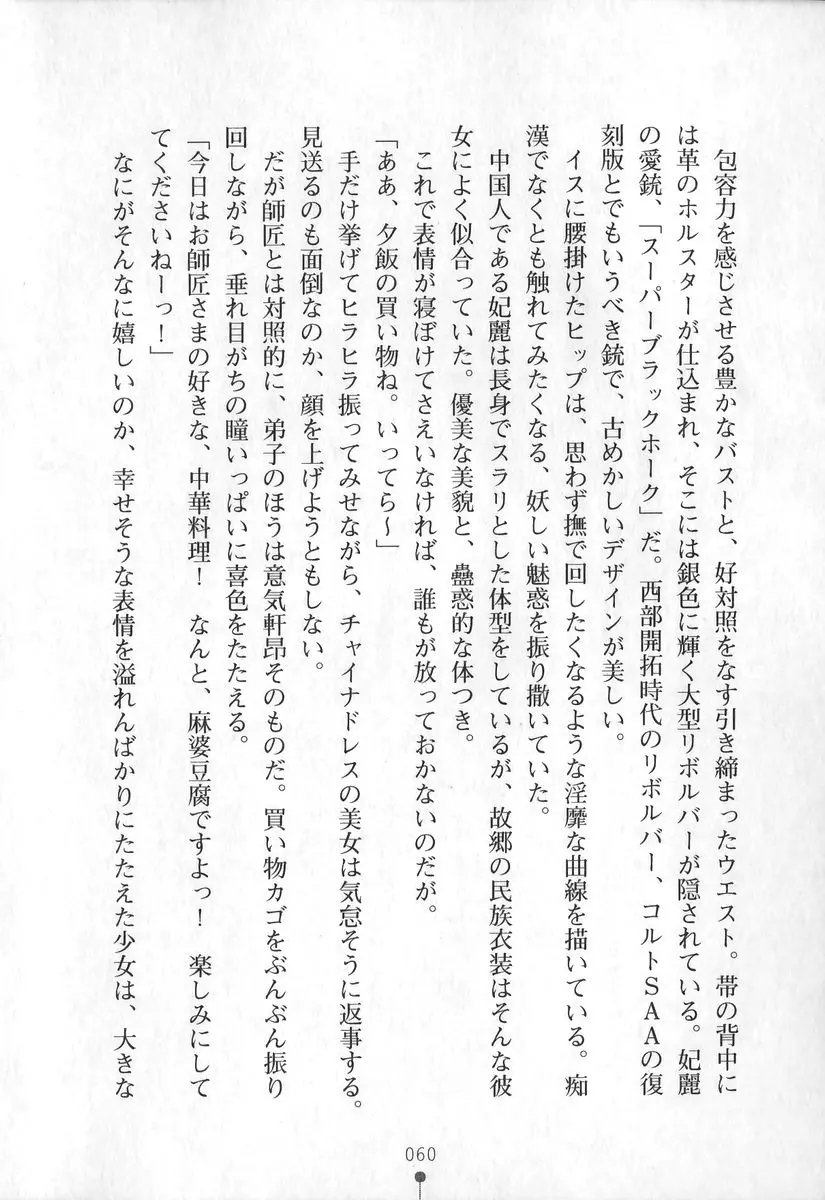 包容力を感じさせる豊かなバストと、好対照をなす引き締まったウエスト。帯の背中に
は革のホルスターが仕込まれ、そこには銀色に輝く大型リボルバーが隠されている。妃麗
の愛銃、「スーパーブラックホーク」だ。西部開拓時代のリボルバー、コルトＳＡＡの復
刻版とでもいうべき銃で、古めかしいデザインが美しい。
イスに腰掛けたヒップは、思わず撫で回したくなるような淫靡な曲線を描いている。痴
漢でなくとも触れてみたくなる、妖しい魅惑を振り撒いていた。
中国人である妃麗は長身でスラリとした体型をしているが、故郷の民族衣装はそんな彼
女によく似合っていた。優美な美貌と、蠱惑的な体つき。
これで表情が寝ぼけてさえいなければ、誰もが放っておかないのだが。
「ああ、夕飯の買い物ね。いってら～」
手だけ挙げてヒラヒラ振ってみせながら、チャイナドレスの美女は気怠そうに返事する。
見送るのも面倒なのか、顔を上げようともしない。
だが師匠とは対照的に、弟子のほうは意気軒昂そのものだ。買い物カゴをぶんぶん振り
回しながら、垂れ目がちの瞳いっぱいに喜色をたたえる。
「今日はお師匠さまの好きな、中華料理！　なんと、麻婆豆腐ですよっ！　楽しみにして
てくださいねーっ！」
なにがそんなに嬉しいのか、幸せそうな表情を溢れんばかりにたたえた少女は、大きな
060